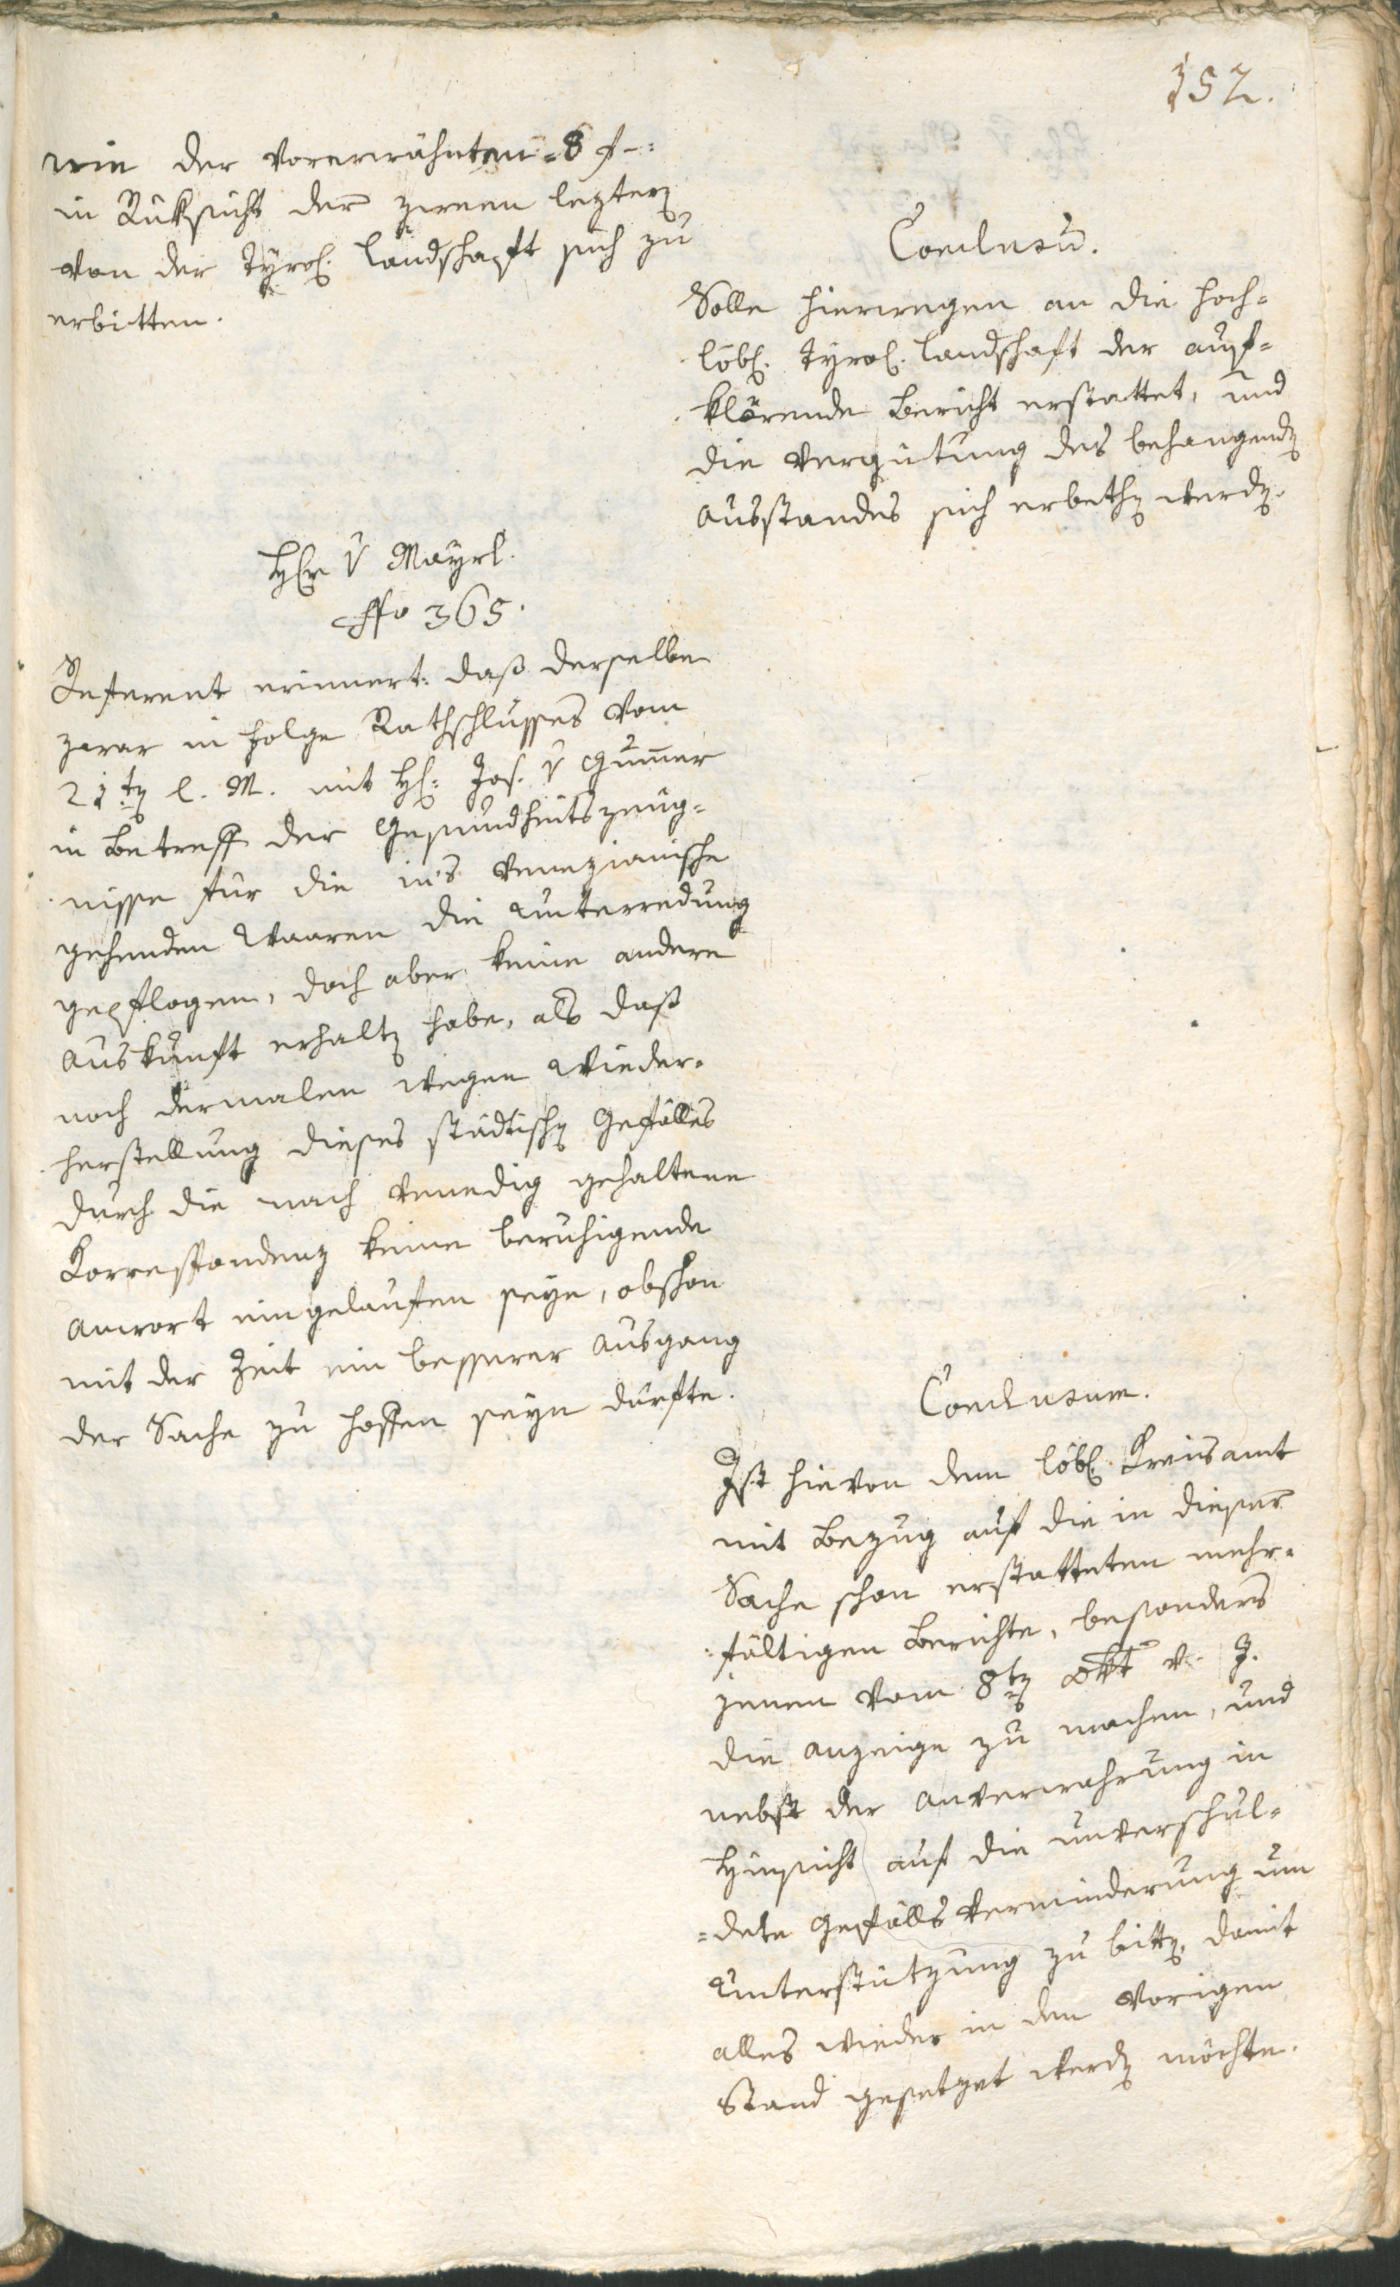 152.
wie der vorerwähnten 8 f –:
in Rüksicht der zween leztern
von der Tyrol. Landschaft sich zu
erbitten.
Conclusū.
Solle hierwegen an die hoch-
löbl. Tyrol. Landschaft der auf-
klärende Bericht erstattet, und
die Vergütung des behangenden
Ausstandes sich erbethen werden.
Hr v Mayrl.
365.
Referent erinnert: daß derselbe
zwar in Folge Rathschlusses vom
21ten l. M. mit H: Jos. v Gum̄er
in Betreff der Gesundheitszeug-
nisse für die in's Venezianische
gehenden Waaren die Unterredung
gepflogen, doch aber keine andere
Auskunft erhalten habe, als daß
noch dermalen wegen Wieder-
herstellung dieses städtischen Gefälles
durch die nach Venedig gehaltene
Korrespondenz keine beruhigende
Antwort eingelaufen seye, obschon
mit der Zeit ein besserer Ausgang
der Sache zu hoffen seyn dürfte.
Conclusum.
Ist hievon dem löbl. Kreisamt
mit Bezug auf die in dieser
Sache schon erstatteten mehr-
fältigen Berichte, besonders
jenen vom 8ten Okt v. J.
die Anzeige zu machen, und
nebst der Anverwahrung in
Hinsicht auf die unverschul-
=dete Gefälls Verminderung um
Unterstützung zu bitten, damit
alles wieder in den vorigen
Stand gesetzet werden möchte.